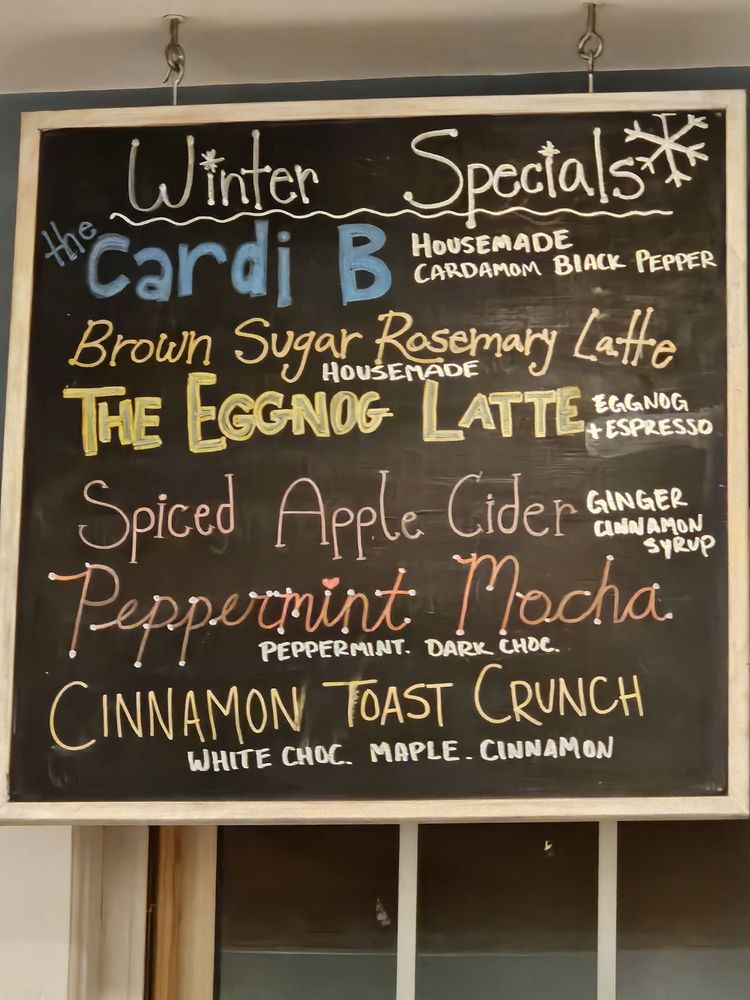 Winter Specials
the Cardi B HOUSEMADE
CARDAMOM BLACK PEPPER
Brown Sugar Rosemary Latte
HOUSEMADE
THE EGGNOG LATTE EGGNOG
+ ESPRESSO
Spiced Apple Cider GINGER
CINNAMON
SYRUP
Peppermint Mocha
PEPPERMINT. DARK CHOC.
CINNAMON TOAST CRUNCH
WHITE CHOC. MAPLE. CINNAMON